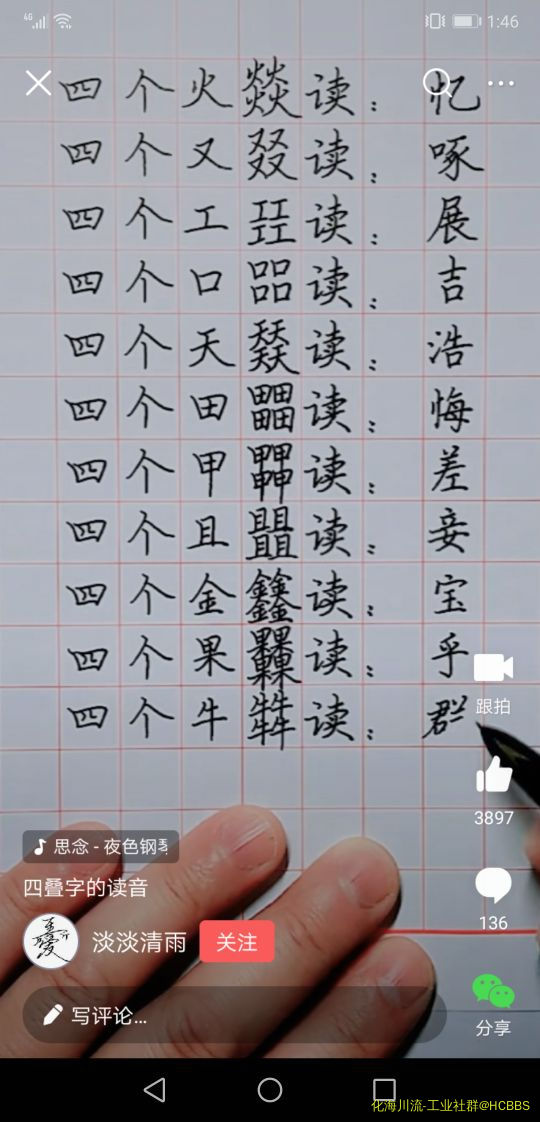 4G
1:46
四个火燚读：忆
四个又叕读：啄
四个工㠭读：展
四个口㗊读：吉
四个天㵘读：浩
四个田畾读：悔
四个甲读：差
四个且读：妾
四个金𨰻读：宝
四个果读：乎
四个牛𤛭读：群
跟拍
3897
思念 - 夜色钢琴
四叠字的读音
136
淡淡清雨
关注
写评论...
分享
化海川流-工业社群@HCBBS